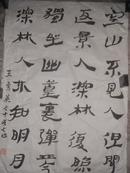 空山不見人但聞
返景入深林復照
獨坐幽篁裏彈琴
深林人不知明月